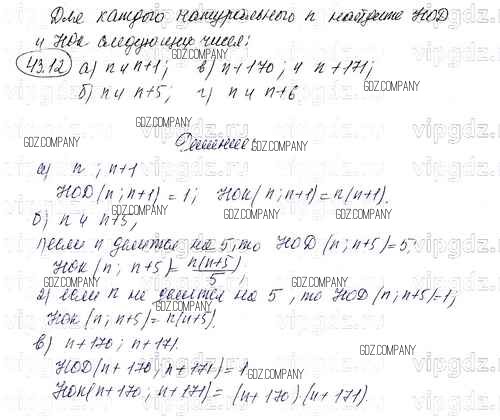 Для каждого натурального n найдите НОД
и НОК следующих чисел:
43.12 а) n и n+1; в) n+170; и n+171;
б) n и n+5; г) n и n+6
Решение:
а) n ; n+1
НОД(n; n+1) = 1; НОК(n; n+1) = n(n+1).
б) n и n+5,
1) если n делится на 5, то НОД (n; n+5) = 5;
НОК (n; n+5) = n(n+5)/5,
2) если n не делится на 5, то НОД(n; n+5)=1;
НОК (n; n+5) = n(n+5).
в) n+170; n+171.
НОД(n+170; n+171) = 1
НОК(n+170; n+171) = (n+170)(n+171).
GDZ.COMPANY
vipgdz.ru